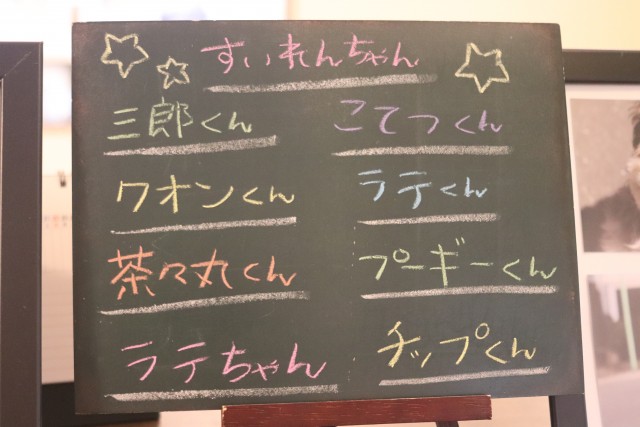 すいれんちゃん
三郎くん こてつくん
クオンくん ラテくん
茶々丸くん プーギーくん
ラテちゃん チップくん